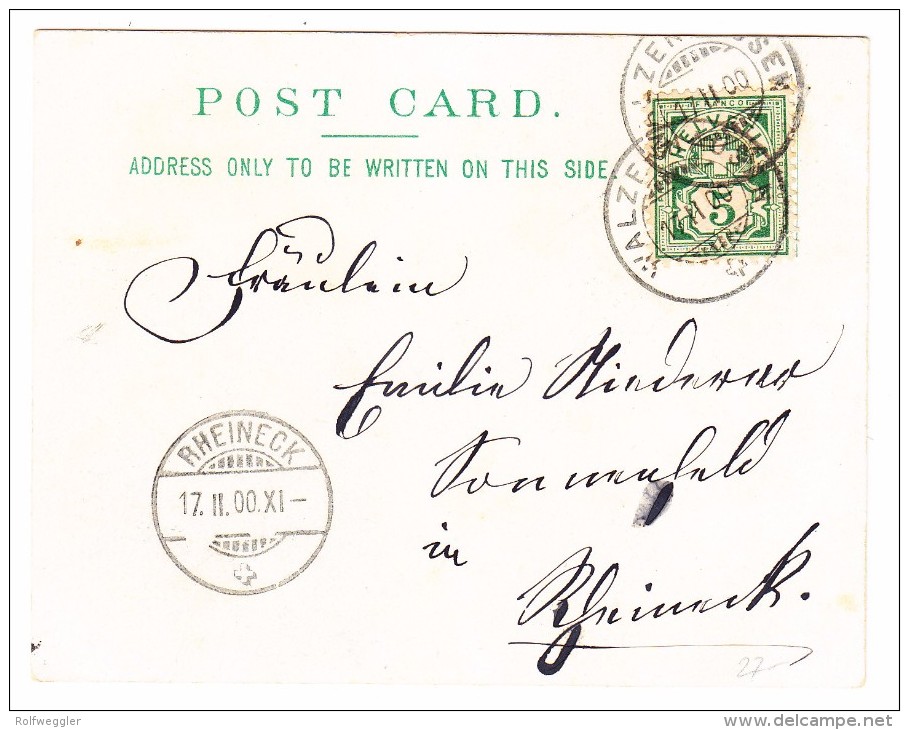 POST CARD.
ADDRESS ONLY TO BE WRITTEN ON THIS SIDE
WALZENHAUSEN
17 II 00
FRANCO
HELVETIA
5
WALZE
17 II 00
Fräulein
Emilie Niederer
Sonnenfeld
in
Rheineck.
RHEINECK
17. II. 00. XI–
27
Rolfweggler
www.delcampe.net